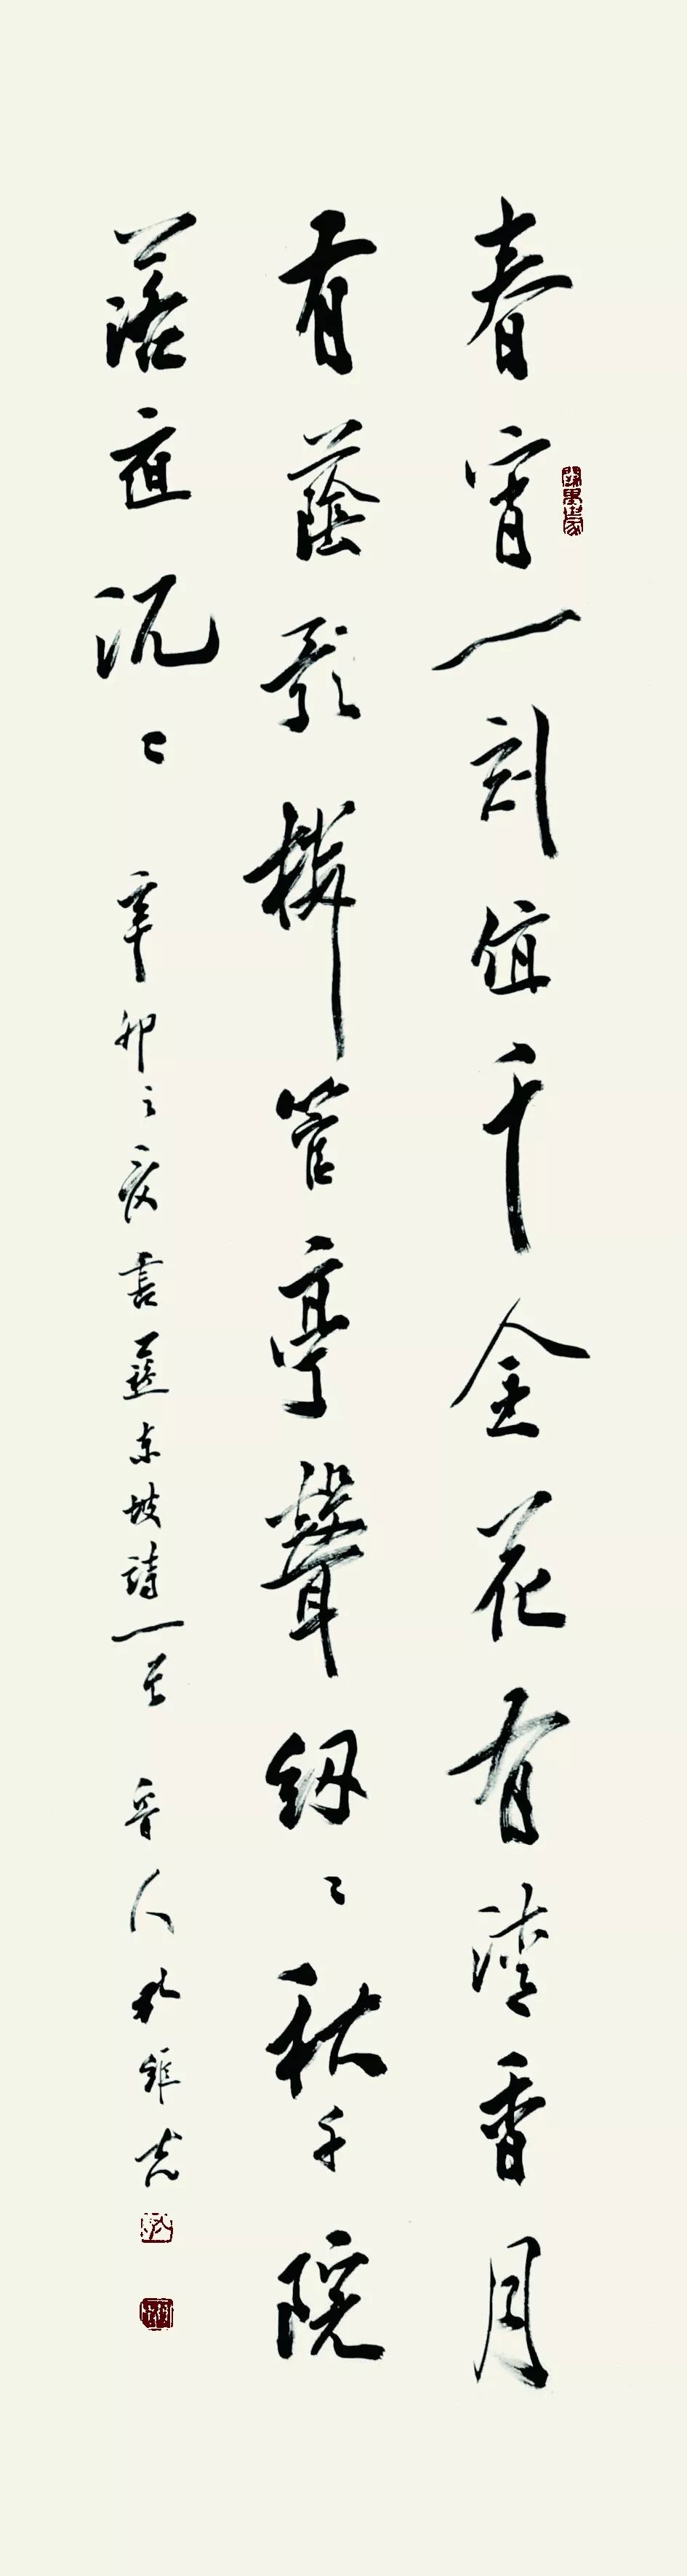 春宵一刻值千金花有清香月
有蔭歌樓管亭聲細〻秋千院
落夜沉〻 辛卯之夏書蘇東坡詩一首 人孔維克